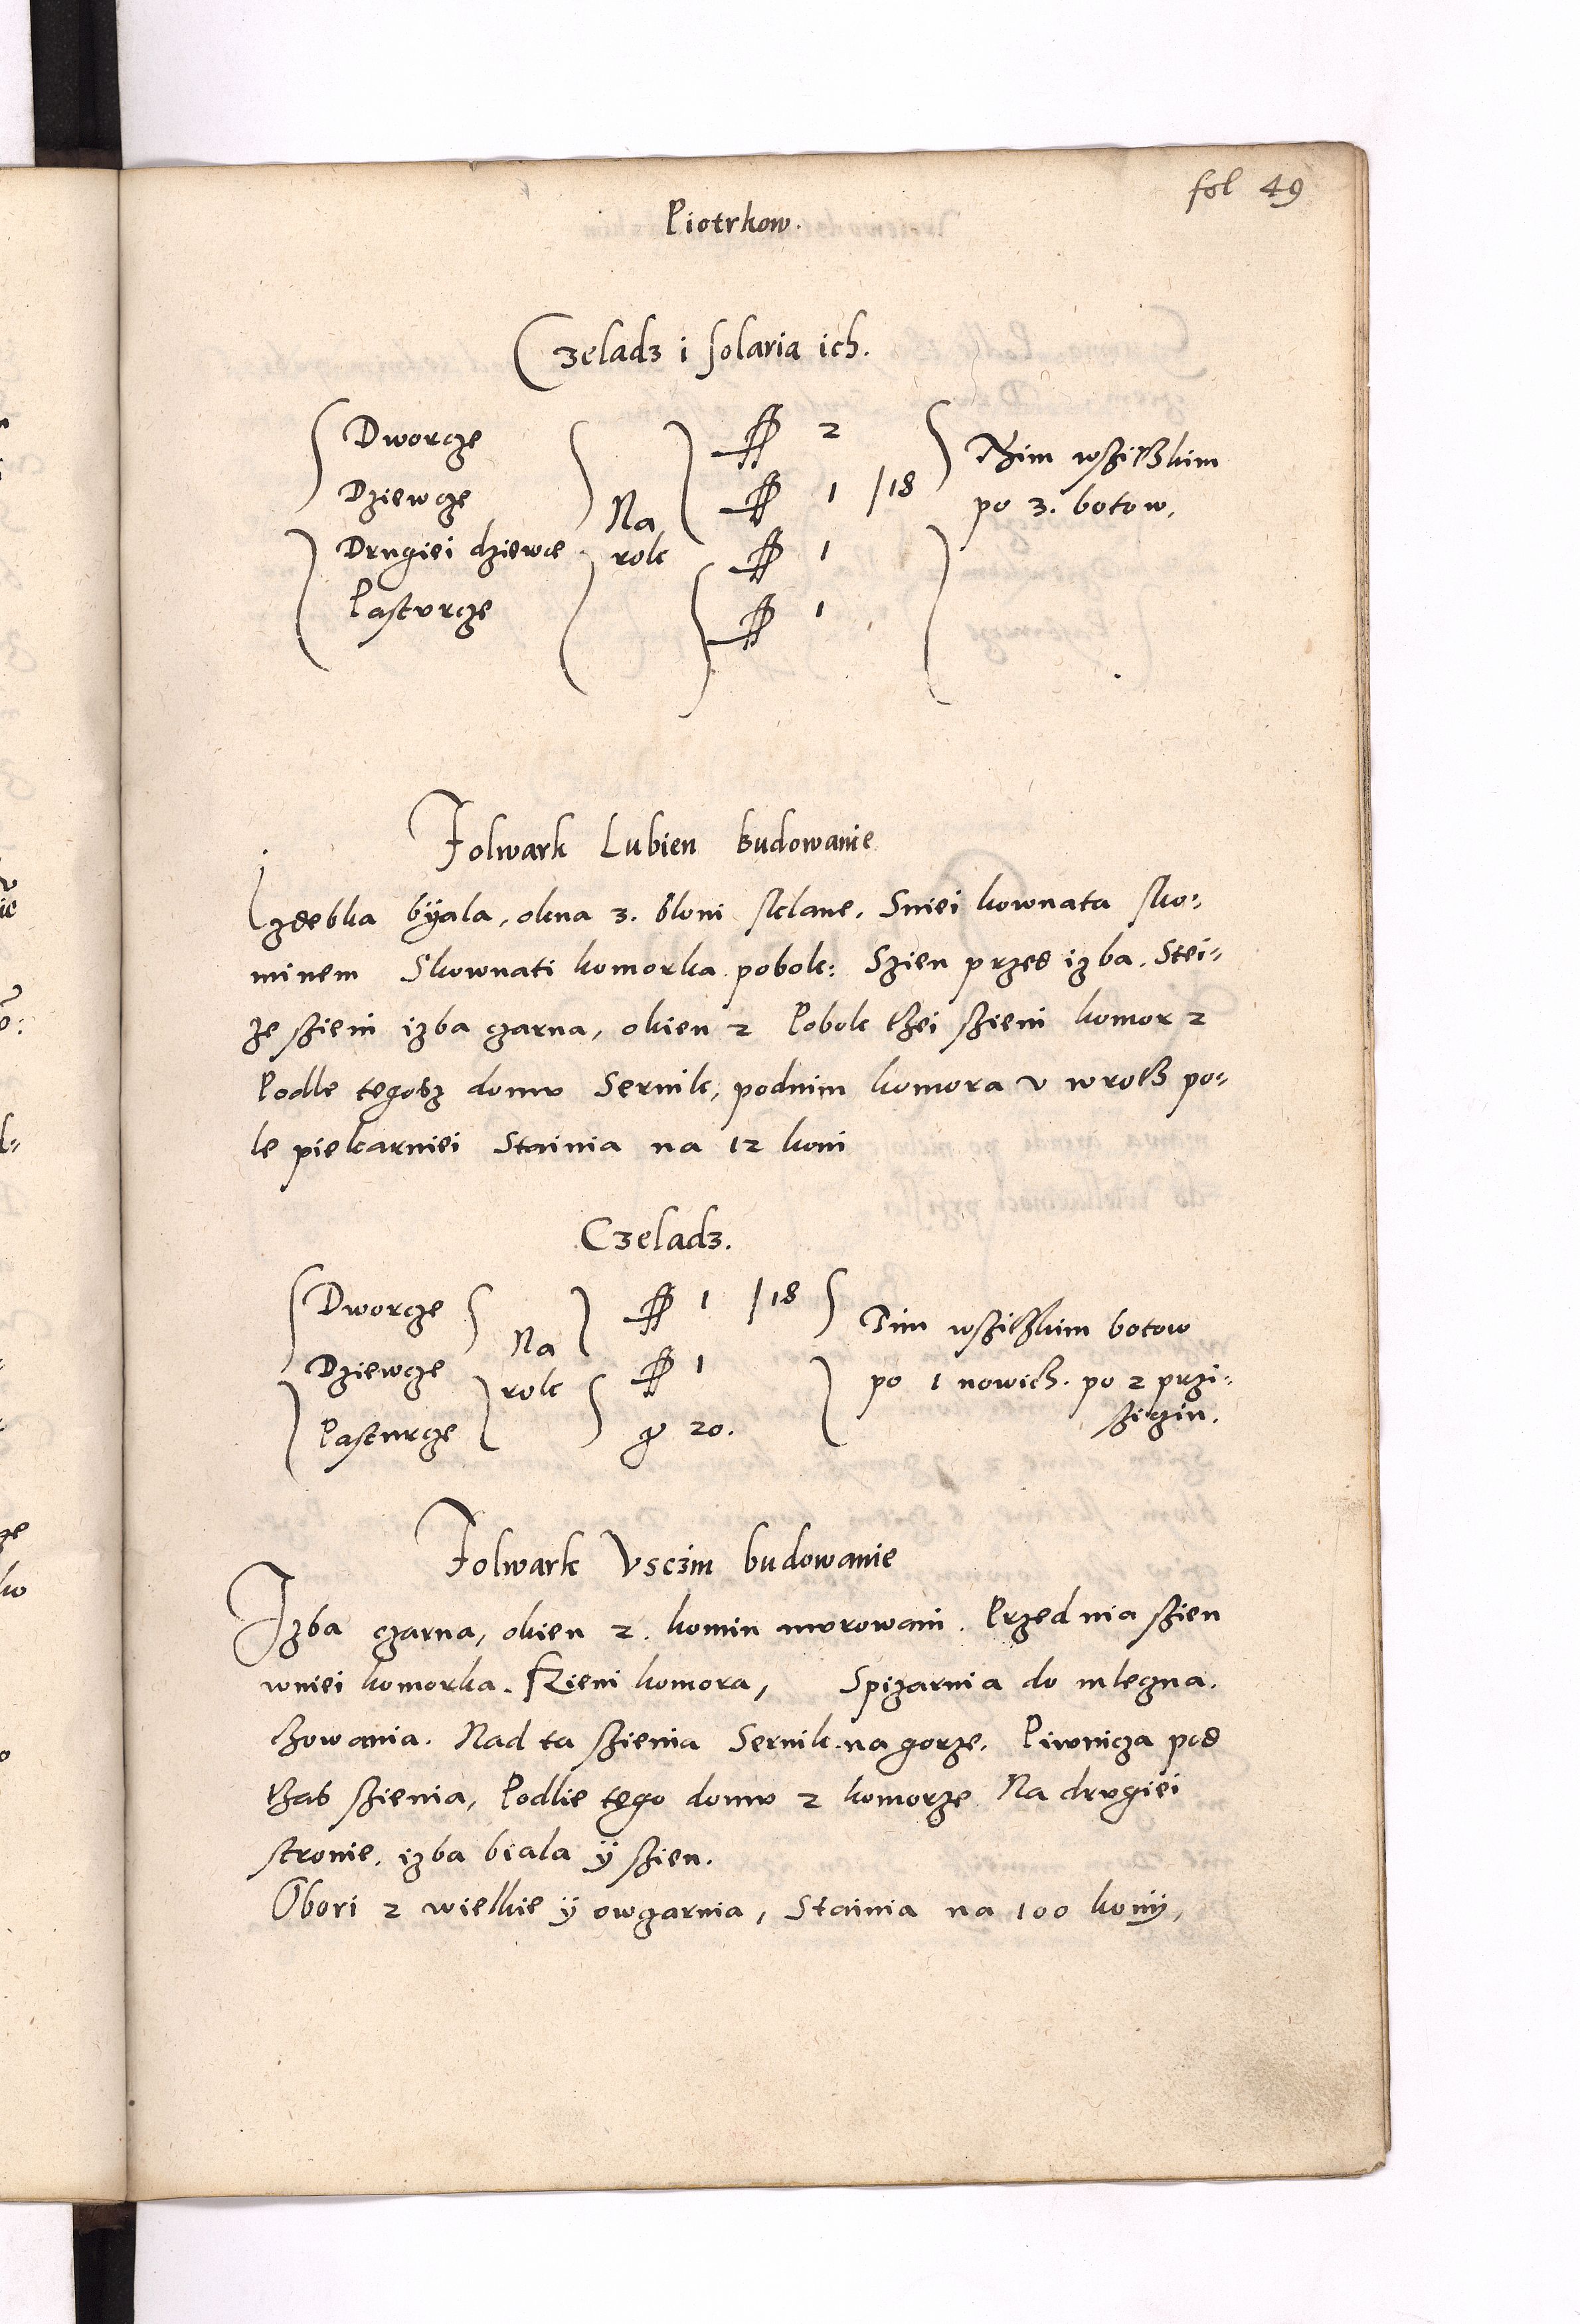 fol 49
Piotrkow.
Czeladz i solaria ich.
Dworcze
Dziewcze
Drugiei dziewce
Pasturze
Na
rok
2
1 /18
1
1
Thim wszithkim
po 3. botow.
Folwark Lubien budowanie
Izdebka byala, okna 3. bloni sklane. Sniei kownata sko:
minem Skownati komorka pobok: Szien przed izba. Stei:
ze szieni izba czarna, okien 2 Pobok thei szieni komor 2
Podle tegosz domu Sernik, podnim komora v wroth po:
le piekarniei Stainia na 12 koni
Czeladz.
Dworcze
Dziewcze
Pasturze
Na
rok
1 /18
1
g 20.
Tim wszithkim botow
po 1 nowich. po 2 przi:
sziciu.
Folwark Vsczin budowanie
Izba czarna, okien 2. komin murowani. Przed nia szien
wniei komorka. szieni komora, Spizarnia do mleczna.
chowania. Nad ta szienia Sernik na gorze. Piwnicza pod
thas szienia, Podlie tego domu 2 komorze Na drugiei
stronie. izba biala ÿ szien.
Obori 2 wielkie ÿ owczarnia, Stainia na 100 konÿ,